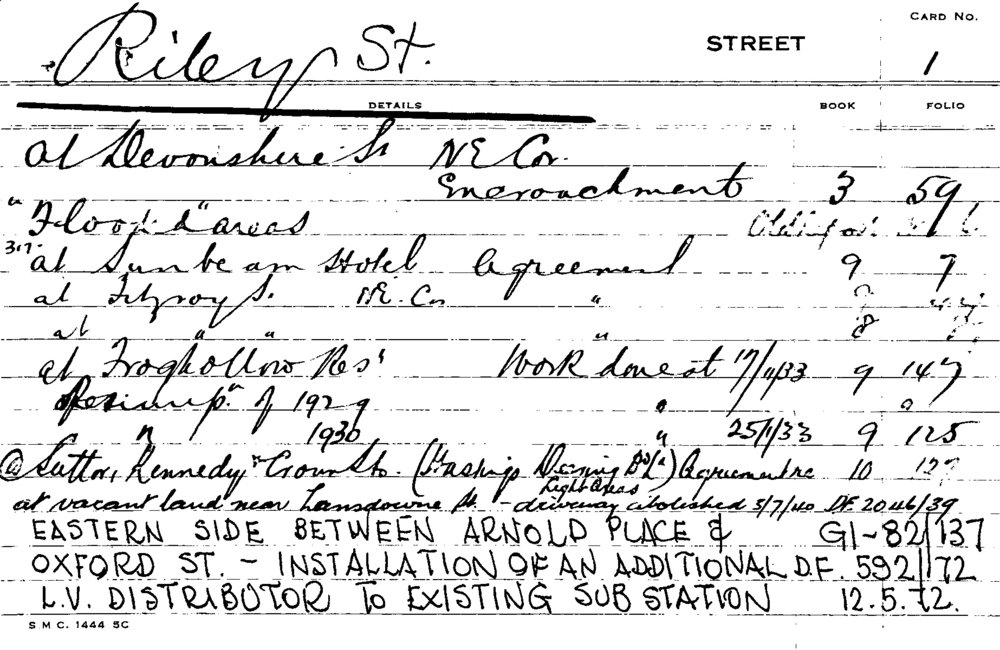 CARD NO.
Riley St. STREET 1
DETAILS BOOK FOLIO
at Devonshire St NE Cor.
Encroachment 3 59
"Flooded" areas
317 at Sunbeam Hotel Agreement 9 7
at Fitzroy St. NE. Cor "
at " " " 8
at Froghollow Res' Work done at 17/11/33 9 147
Resump'n of 1929 " "
" 1930 " 25/1/33 9 125
@ Sutton, Kennedy & Crown Sts. (Hastings Deering Bldg) Agreement re 10
Light Areas
at vacant land near Lansdowne St. - driveway abolished 5/7/40 DF. 2046/39
EASTERN SIDE BETWEEN ARNOLD PLACE & G1-82/137
OXFORD ST. - INSTALLATION OF AN ADDITIONAL D.F. 592/72
L.V. DISTRIBUTOR TO EXISTING SUB STATION 12.5.72.
S M C. 1444 5C